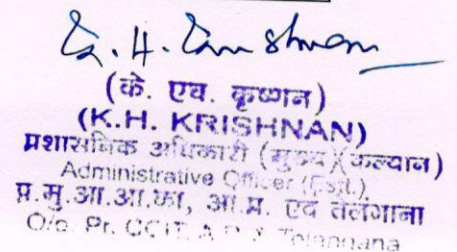 K. H. Krishnan
(के. एच. कृष्णन)
(K.H. KRISHNAN)
प्रशासनिक अधिकारी (मुख्य)(कल्याण)
Administrative Officer (Estt.)
प्र.मु.आ.आ.का, आं.प्र. एवं तेलंगाना
O/o. Pr. CCIT, A.P & Telangana